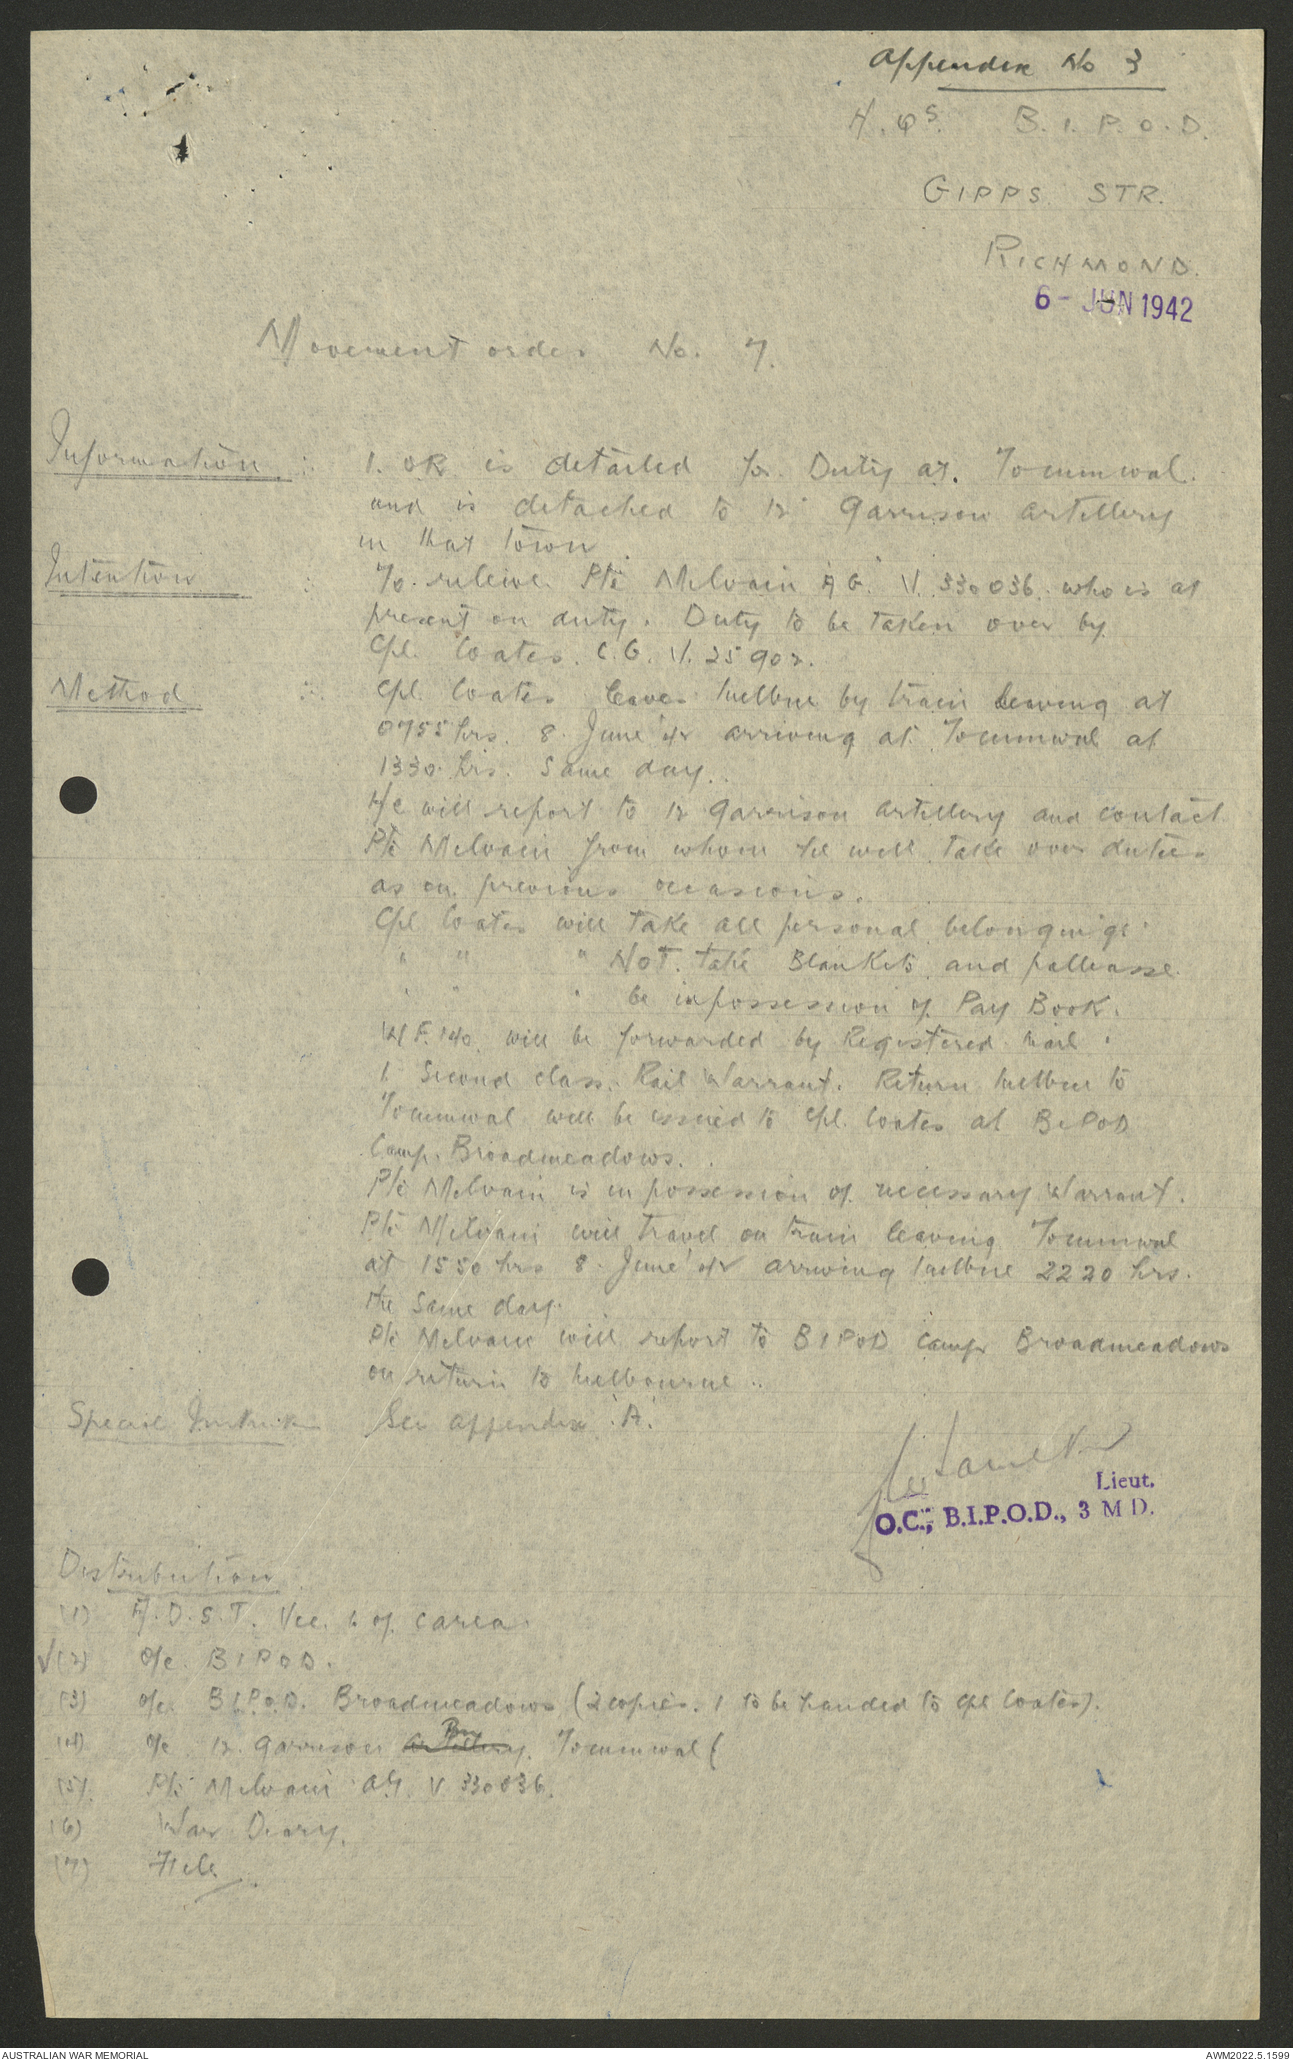 Appendix No 3
H.Qs. B.I.P.O.D.
GIPPS STR.
RICHMOND.
6 - JUN 1942
Movement order No. 7.
Information : 1. OR is detailed for Duty at. Tocumwal.
and is detached to 12 Garrison Artillery
in that town
Intention : To relieve Pte McIvain A G. V. 330036. who is at
present on duty. Duty to be taken over by
Cpl. Coates. C.G. V. 25902.
Method : Cpl. Coates leaves Melbne by train leaving at
0755 hrs. 8 June '42 arriving at Tocumwal at
1330 hrs. Same day.
He will report to 12 Garrison Artillery and contact
Pte McIvain from whom he will take over duties
as on previous occasions.
Cpl Coates will take all personal belongings
" " " NOT. take Blankets and palleasse.
" " " be in possession of Pay Book.
will be forwarded by Registered Mail.
1 Second class. Rail Warrant. Return Melbne to
Tocumwal will be issued to Cpl. Coates at BIPOD
Camp. Broadmeadows.
Pte McIvain is in possession of necessary Warrant.
Pte McIvain will travel on train leaving Tocumwal
at 1550 hrs 8 June '42 arriving Melbne 2220 hrs.
the same day.
Pte McIvain will report to BIPOD Camp Broadmeadows
on return to Melbourne.
Special Instructn See appendix 'A'.
Lieut.
O.C., B.I.P.O.D., 3 M D.
Distribution
(1) A.D.S.T. Vic. L of C area.
✓(2) O/c. BIPOD.
(3) O/c. B.I.P.O.D. Broadmeadows (2 copies. 1 to be handed to Cpl Coates).
(4) O/c 12 Garrison Artillery Bn. Tocumwal (
(5) Pte McIvain A.G. V 330036.
(6) War Diary.
(7) File
AUSTRALIAN WAR MEMORIAL
AWM2022.5.1599